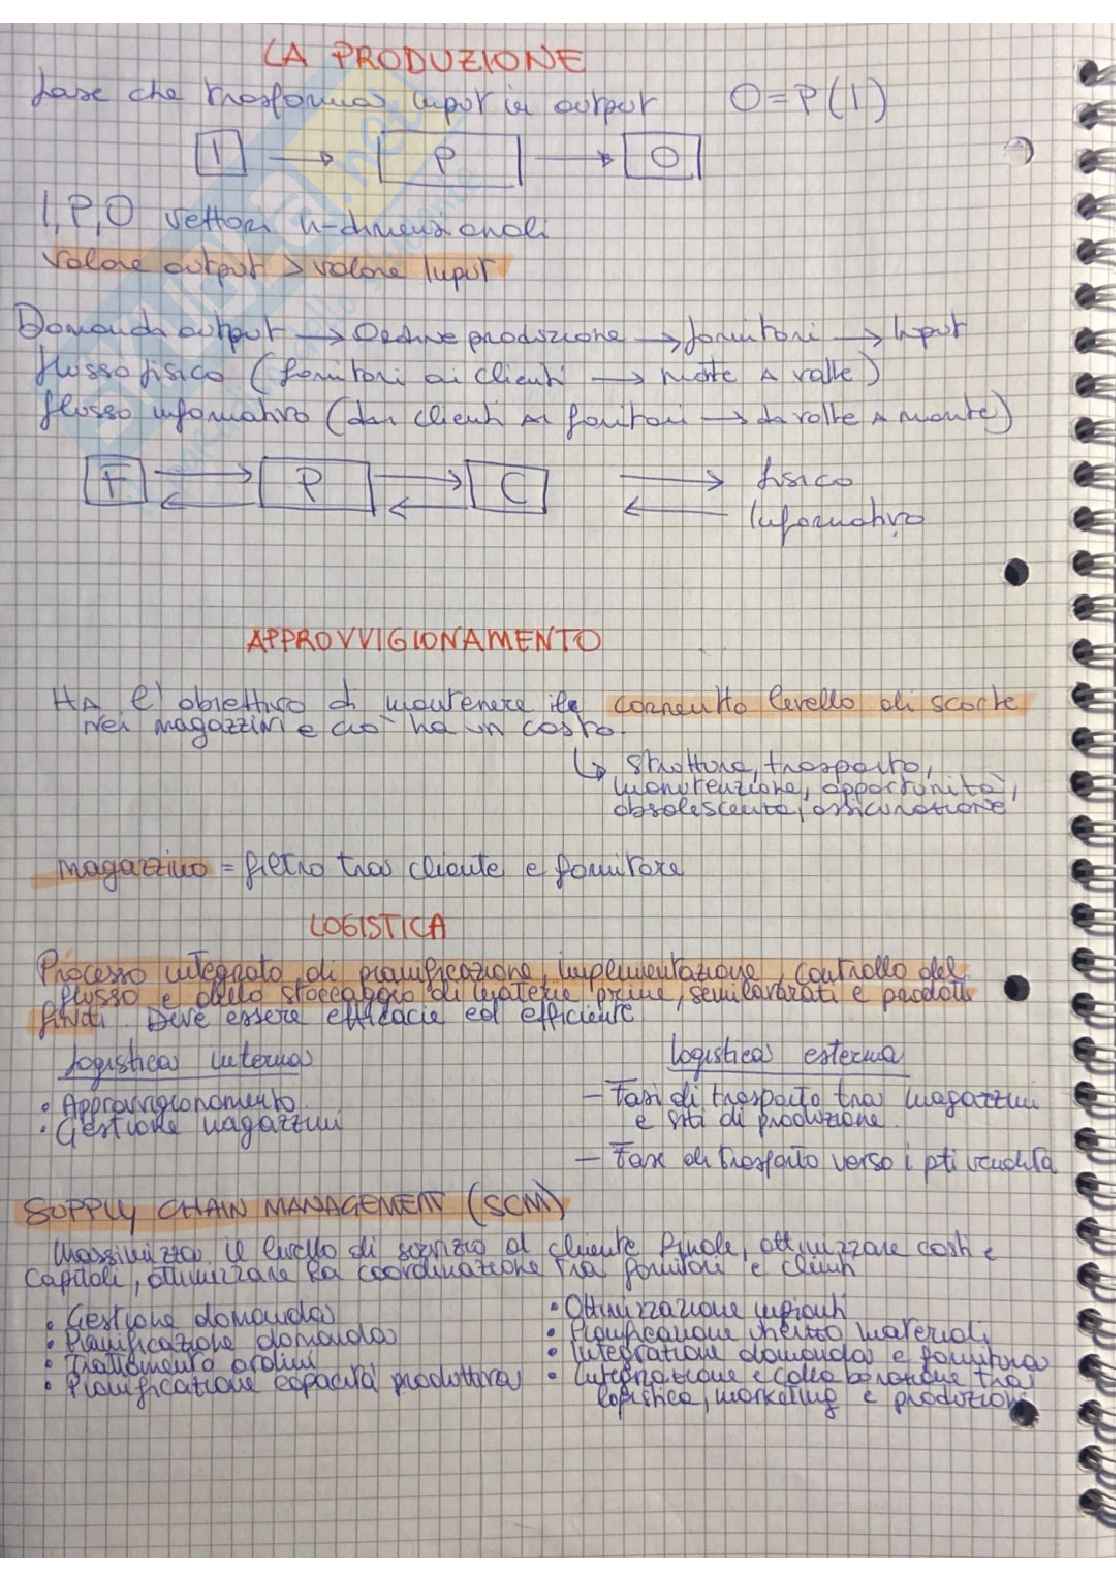 LA PRODUZIONE
fase che trasforma input in output O=P(I)
I → P → O
I,P,O vettori n-dimensionali
valore output > valore input
Domanda output → Ordine produzione → fornitori → Input
flusso fisico (fornitori ai clienti → monte A valle)
flusso informativo (dai clienti ai fornitori → da valle A monte)
F P C fisico
Informativo
APPROVVIGIONAMENTO
HA l'obiettivo di mantenere il corretto livello di scorte
nei magazzini e ciò ha un costo.
↳ struttura, trasporto,
manutenzione, opportunità,
obsolescenza, assicurazione
magazzino = filtro tra cliente e fornitore
LOGISTICA
Processo integrato di pianificazione, implementazione, controllo del
flusso e dello stoccaggio di materie prime, semilavorati e prodotti
finiti. Deve essere efficacie ed efficiente
logistica interna logistica esterna
• Approvvigionamento
• Gestione magazzini
– Fasi di trasporto tra magazzini
e siti di produzione.
– Fase di trasporto verso i pti vendita
SUPPLY CHAIN MANAGEMENT (SCM)
Massimizza il livello di servizio al cliente finale, ottimizzare costi e
capitali, ottimizzare la coordinazione tra fornitori e clienti
• Gestione domanda
• Pianificazione domanda
• Trattamento ordini
• Pianificazione capacità produttiva
• Ottimizzazione impianti
• Pianificazione materiali
• Integrazione domanda e fornitura
• Integrazione e collaborazione tra
logistica, marketing e produzione